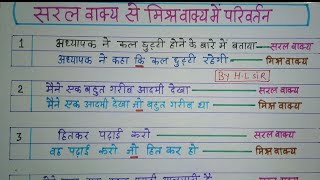 सरल वाक्य से मिश्र वाक्य में परिवर्तन
1 अध्यापक ने कल छुट्टी होने के बारे में बताया — सरल वाक्य
अध्यापक ने कहा कि कल छुट्टी रहेगी — मिश्र वाक्य
By H.L SIR
2 मैंने एक बहुत गरीब आदमी देखा — सरल वाक्य
मैंने एक आदमी देखा जो बहुत गरीब था — मिश्र वाक्य
3 हितकर पढ़ाई करो — सरल वाक्य
वह पढ़ाई करो जो हितकर हो — मिश्र वाक्य